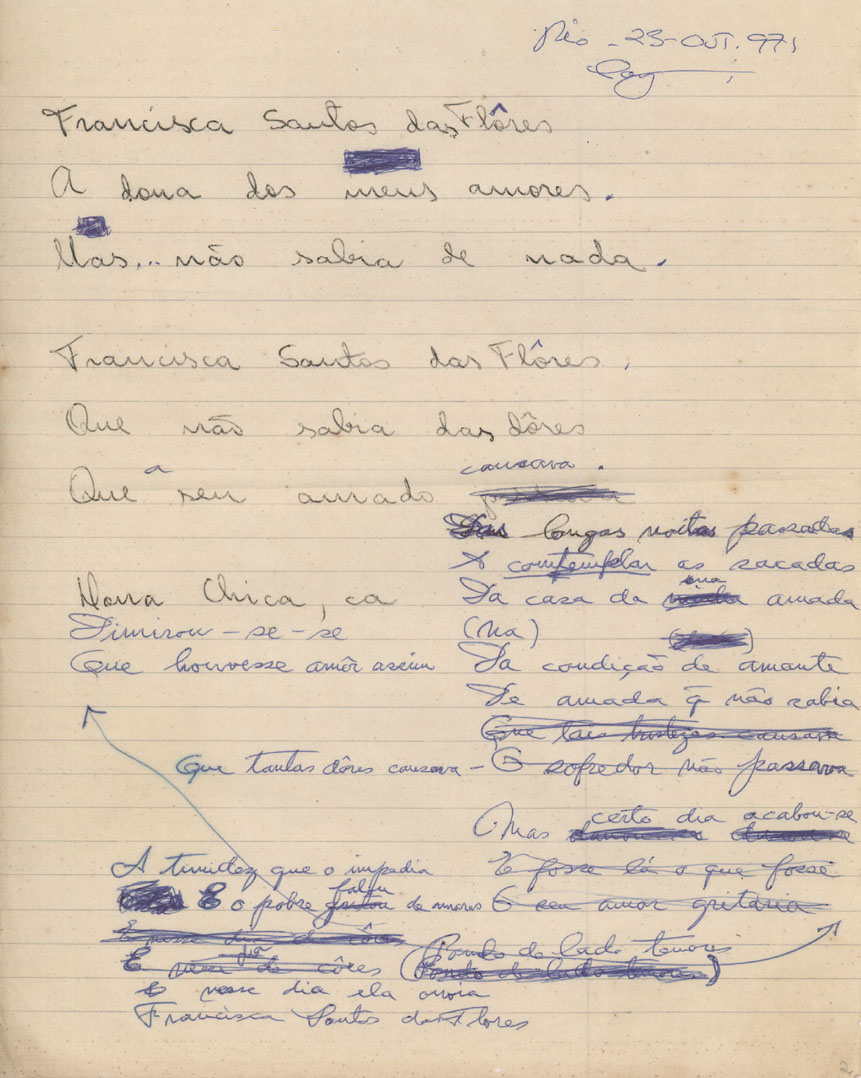 Rio - 23-OUT. 971
Francisca Santos das Flôres
A dona dos meus amores.
Mas... não sabia de nada.
Francisca Santos das Flôres.
Que não sabia das dôres
causava.
Que a seu amado
Das longas noites passadas
A contemplar as sacadas
Da casa da sua amada
Dona Chica, ca
Dimirou-se-se
(Na)
Que houvesse amôr assim
Da condição de amante
De amada q̃ não sabia
Que tais tristezas causava
Que tantas dôres causava - O sofredor não passava
Mas certo dia acabou-se
A timidez que o impedia
E fosse lá o que fosse
E o pobre falou de amores
O seu amor gritaria
E nesse dia de côres
Pondo de lado temores
E nesse dia de côres (Pondo de lado temores)
E nesse dia ela ouvia
Francisca Santos das Flores
2